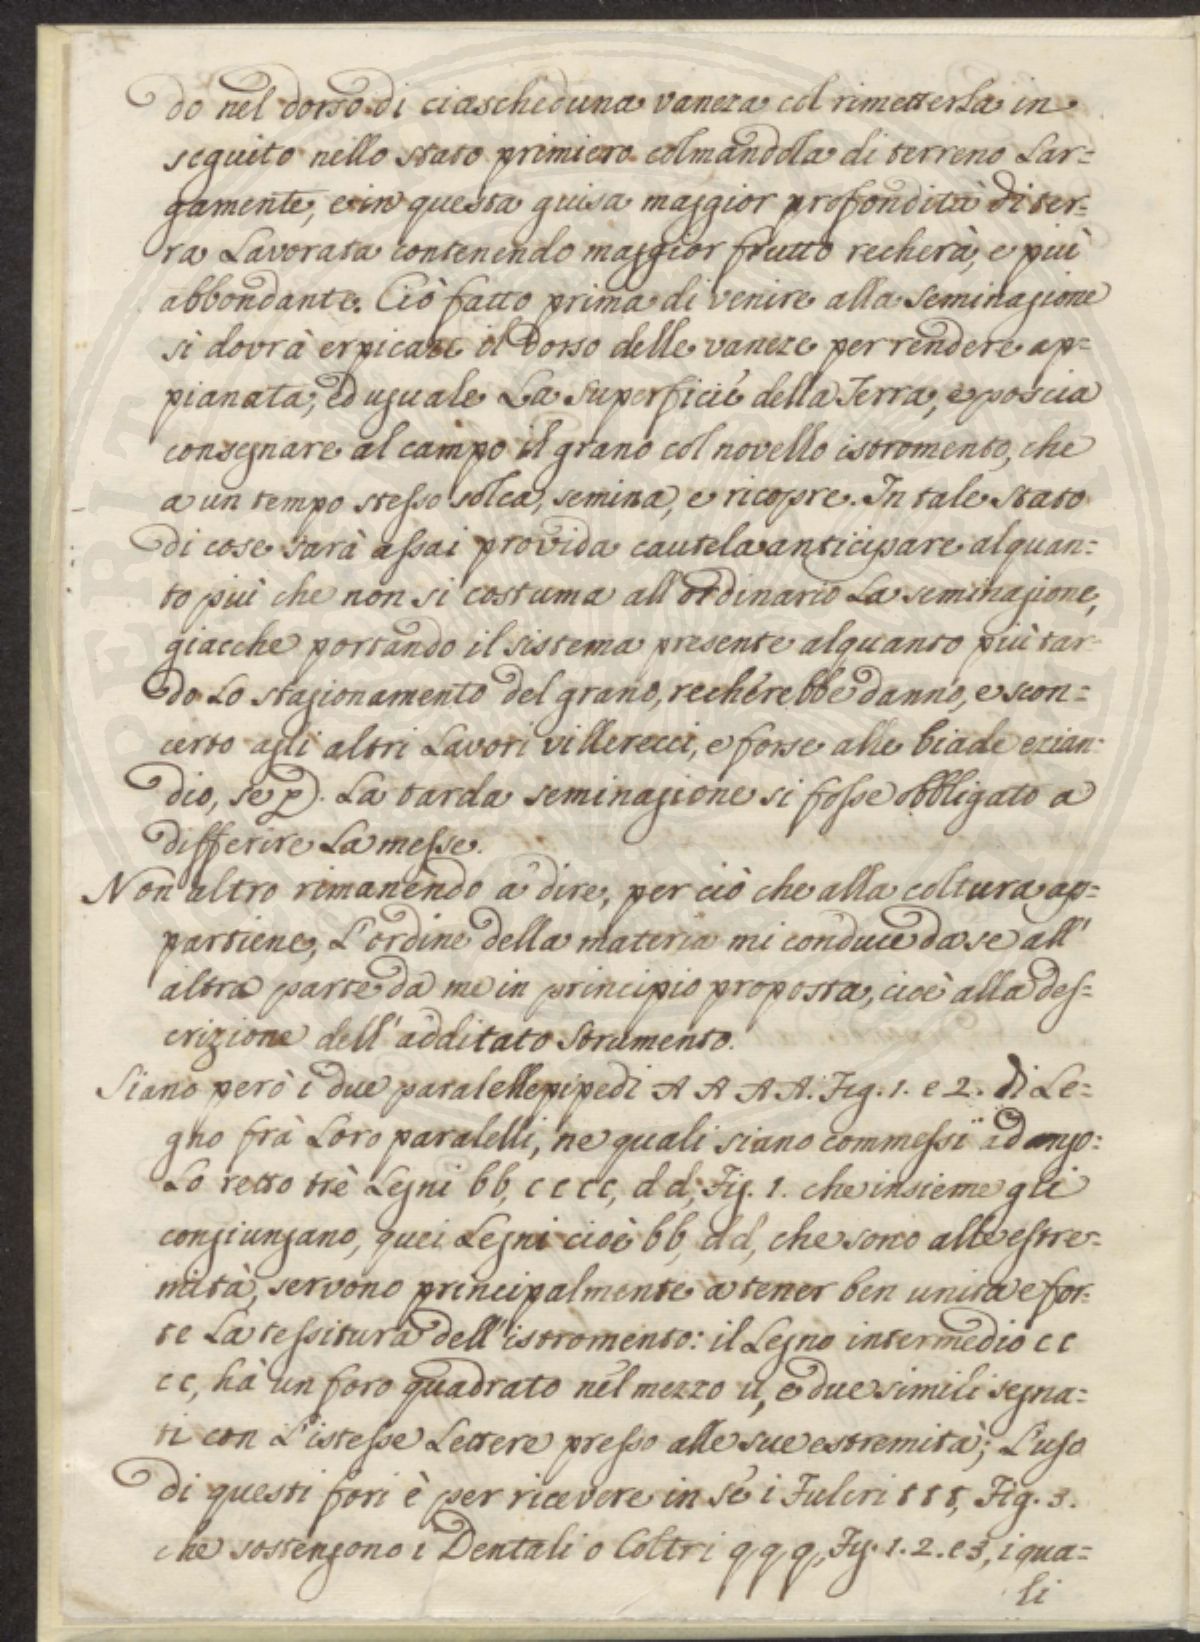 do nel dorso di ciascheduna vaneza col rimetterla in
seguito nello stato primiero colmandola di terreno lar=
gamente, e in questa guisa maggior profondità di ter=
ra lavorata contenendo maggior frutto recherà, e più
abbondante. Ciò fatto prima di venire alla seminagione
si dovrà erpicare il dorso delle vaneze per rendere ap=
pianata, ed uguale la superficie della Terra, e poscia
consegnare al campo il grano col novello istromento, che
a un tempo stesso solca, semina, e ricopre. In tale stato
di cose sarà assai provida cautela anticipare alquan=
to più che non si costuma all'ordinario la seminagione,
giacche portando il sistema presente alquanto più tar=
do lo stagionamento del grano, recherebbe danno, e scon=
certo agli altri lavori villerecci, e forse alle biade ezian=
dio, se p. la tarda seminagione si fosse obbligato a
differire la messe.
Non altro rimanendo a dire, per ciò che alla coltura ap=
partiene, l'ordine della materia mi conduce da se all'
altra parte da me in principio proposta, cioè alla des=
crizione dell'additato strumento.
Siano però i due paralellepipedi A A A A. Fig. 1. e 2. di le=
gno frà loro paralelli, ne quali siano commessi ad ango=
lo retto trè legni bb, cccc, dd, Fig. 1. che insieme gli
congiungano, quei legni cioè bb, dd, che sono alle estre=
mità, servono principalmente a tener ben unita e for=
te la tessitura dell'istromento: il legno intermedio cc
cc, hà un foro quadrato nel mezzo u, e due simili segna=
ti con l'istesse lettere presso alle sue estremità; l'uso
di questi fori è per ricevere in sé i Fulcri ttt, Fig. 3.
che sostengono i Dentali o Coltri q, q, q, Fig. 1. 2. e 3, i qua=
li